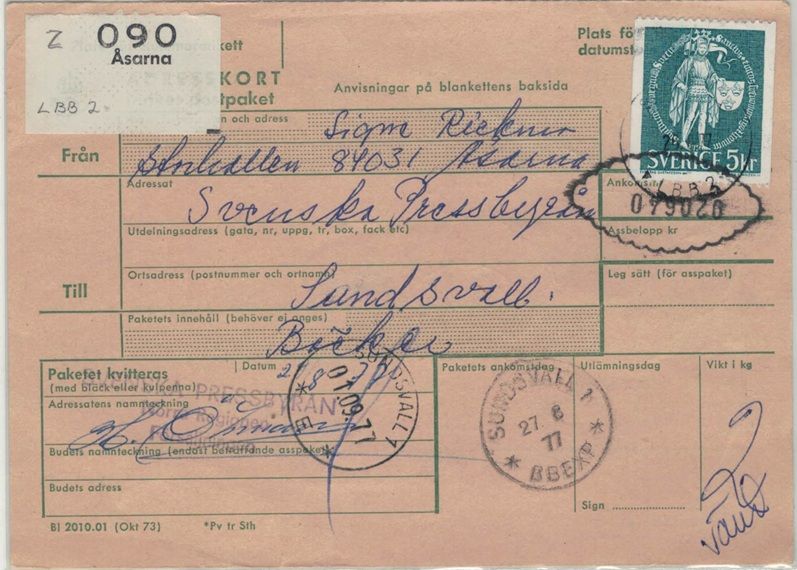 Z 090
Åsarna
LBB 2
ADRESSKORT
Anvisningar på blankettens baksida
Plats fö
datumst
SVERIGE 5 kr
LBB 2
Från
n och adress
Signe
84031 Åsarna
Adressat
Svenska Pressbyrån
Ankomstnr
079020
Utdelningsadress (gata, nr, uppg, tr, box, fack etc)
Assbelopp kr
Till
Ortsadress (postnummer och ortnamn)
Sundsvall.
Leg sätt (för asspaket)
Paketets innehåll (behöver ej anges)
Böcker
Paketet kvitteras
(med bläck eller kulpenna)
Datum
PRESSBYRÅN
Adressatens namnteckning
Budets namnteckning (endast beträffande asspaket)
Budets adress
SUNDSVALL 1
01.09.77
E
Paketets ankomstdag
SUNDSVALL 1
27 8
77
BBEXP
Utlämningsdag
Sign
Vikt i kg
2
Bl 2010.01 (Okt 73)
*Pv tr Sth